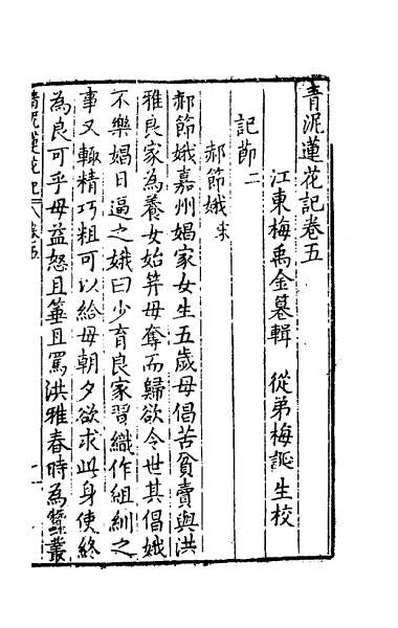 青泥蓮花記卷五
江東梅禹金纂輯　從弟梅誕生校
記節二
郝節娥宋
郝節娥嘉州娼家女生五歲母倡苦貧賣與洪
雅良家為養女始笄母奪而歸欲令世其倡娥
不樂娼日逼之娥曰少育良家習織作組紃之
事又輒精巧粗可以給母朝夕欲求此身使終
為良可乎母益怒且箠且罵洪雅春時為蠶叢
青泥蓮花記